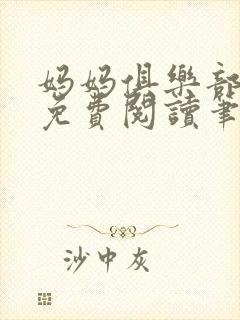 妈妈俱樂部
免費閱讀筆
沙中灰